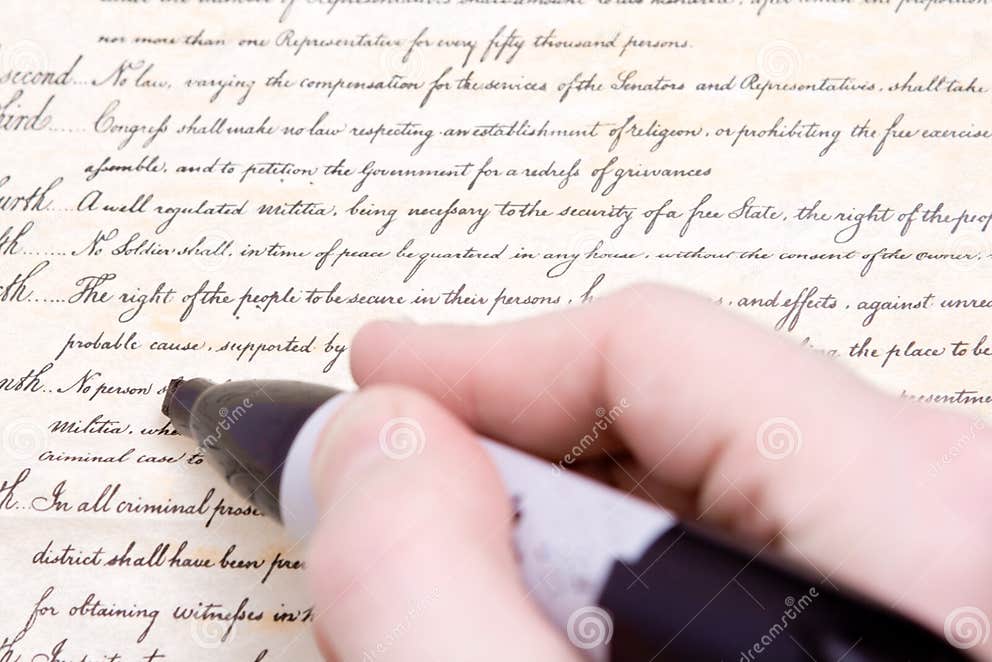 nor more than one Representative for every fifty thousand persons.
second... No law, varying the compensation for the services of the Senators and Representatives, shall take
hird...... Congress shall make no law respecting an establishment of religion, or prohibiting the free exercise
assemble, and to petition the Government for a redress of grievances
urth.... A well regulated Militia, being necessary to the security of a free State, the right of the peop
th....... No Soldier shall, in time of peace be quartered in any house, without the consent of the owner,
th...... The right of the people to be secure in their persons, h s, and effects, against unrea
probable cause, supported by the place to be
nth.. No person s resentme
Militia, whe
criminal case to
h... In all criminal prose
district shall have been pre
for obtaining witnesses in h
dreamstime